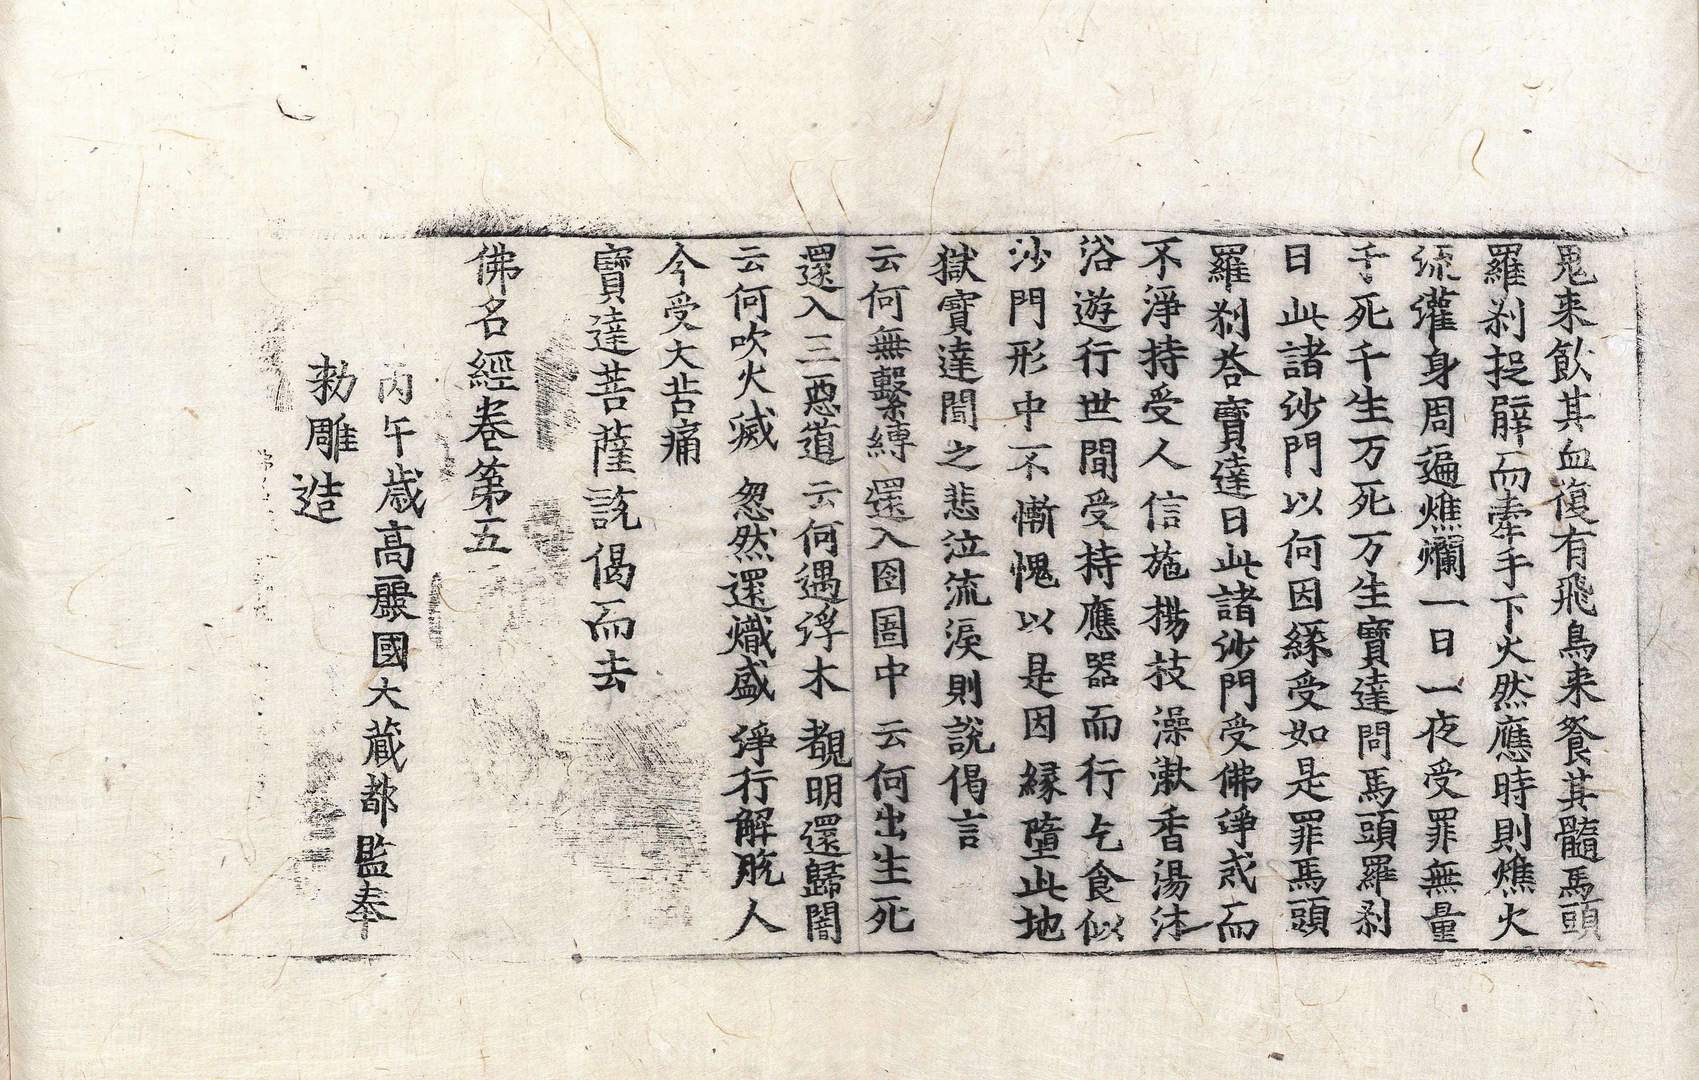 鬼来飲其血復有飛鳥来飡其髓馬頭
羅刹捉臂而牽手下火然應時則燋火
流灌身周遍燋爛一日一夜受罪無量
千死千生万死万生寶達問馬頭羅刹
曰此諸沙門以何因緣受如是罪馬頭
羅刹荅寶達曰此諸沙門受佛淨戒而
不淨持受人信施楊枝澡漱香湯沐
浴遊行世間受持應器而行乞食似
沙門形中不慚愧以是因縁墮此地
獄寶達聞之悲泣流淚則說偈言
云何無繫縛 還入囹圄中 云何出生死
還入三惡道 云何遇浮木 覩明還歸闇
云何吹火滅 忽然還熾盛 淨行解脫人
今受大苦痛
寶達菩薩說偈而去
佛名經卷第五
丙午歲高麗國大藏都監奉
勑雕造